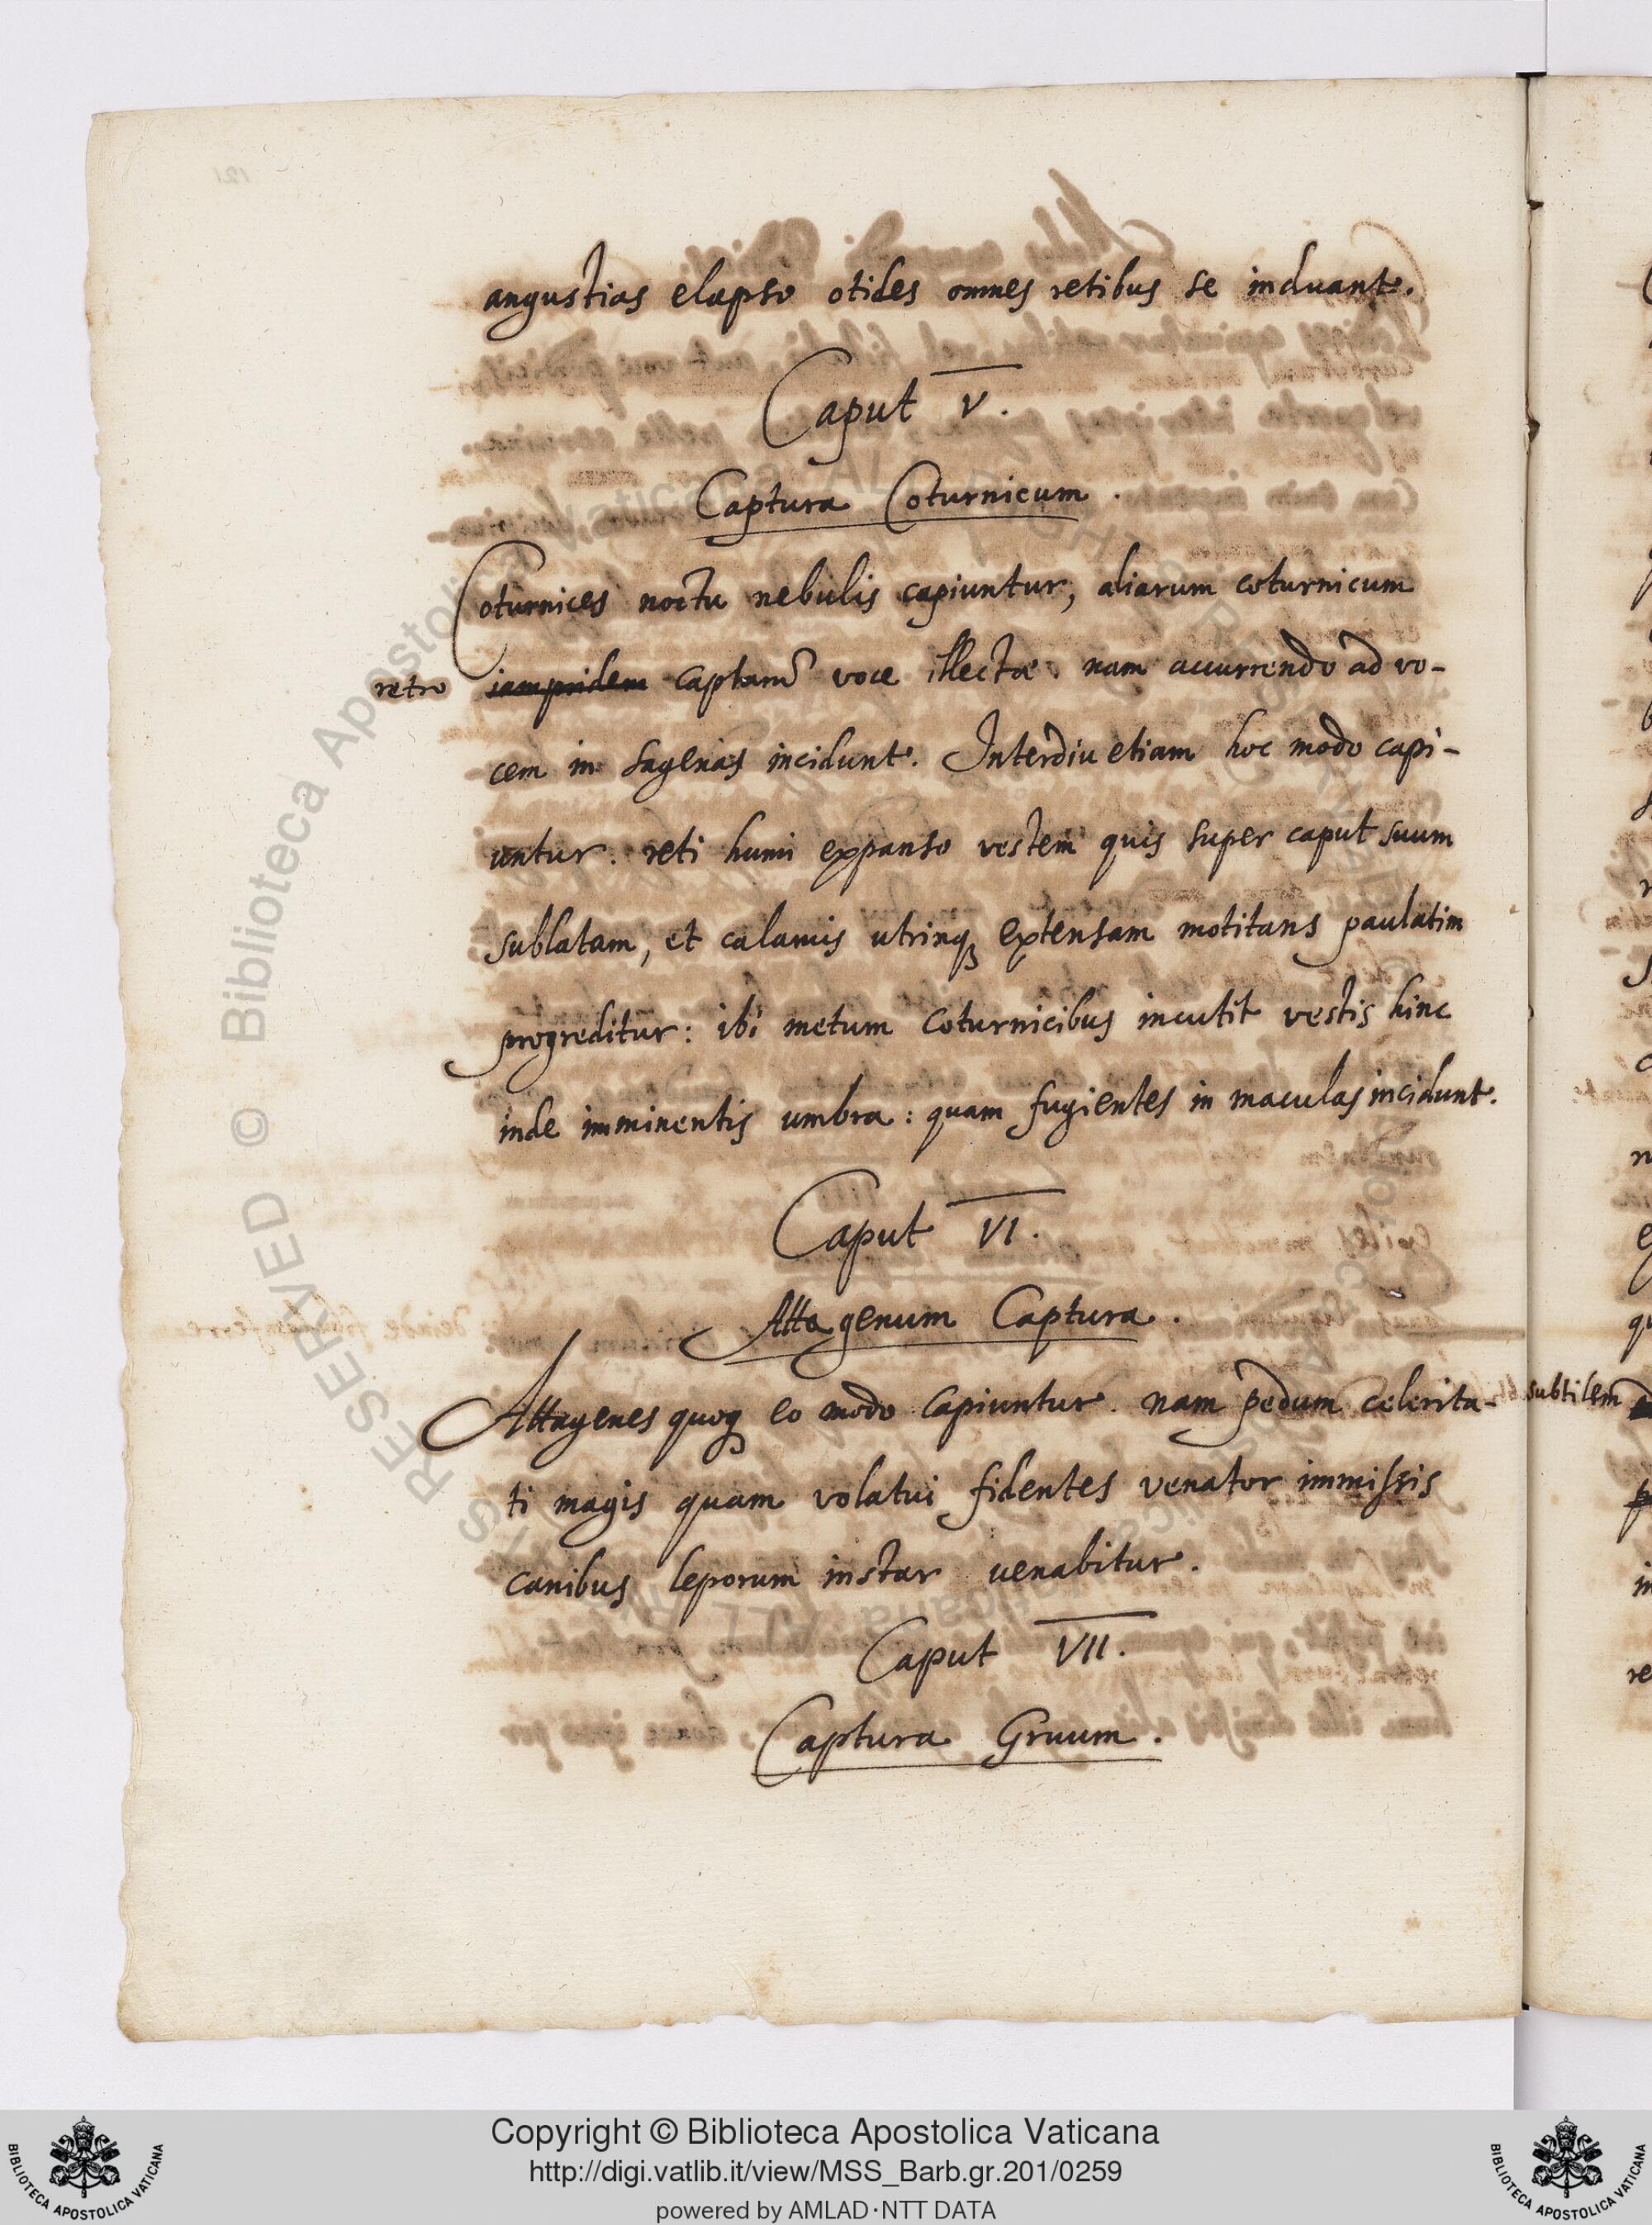 angustias elapso otides omnes retibus se induant.
Caput V.
Captura Coturnicum.
Coturnices noctu nebulis capiuntur, aliarum coturnicum
retro iampridem captarũ voce illectæ. nam accurrendo ad vo-
cem in sagenas incidunt. Interdiu etiam hoc modo capi-
untur. reti humi expanso vestem quis super caput suum
sublatam, et calamis utrinq; extensam motitans paulatim
progreditur: ibi metum coturnicibus incutit vestis hinc
inde imminentis umbra: quam fugientes in maculas incidunt.
Caput VI.
Attagenum Captura.
Attagenes quoq; eo modo capiuntur. nam pedum celerita-
ti magis quam volatui fidentes venator immissis
canibus leporum instar uenabitur.
Caput VII.
Captura Gruum.
subtilem
Copyright © Biblioteca Apostolica Vaticana
http://digi.vatlib.it/view/MSS_Barb.gr.201/0259
powered by AMLAD·NTT DATA
BIBLIOTECA APOSTOLICA VATICANA
BIBLIOTECA APOSTOLICA VATICANA